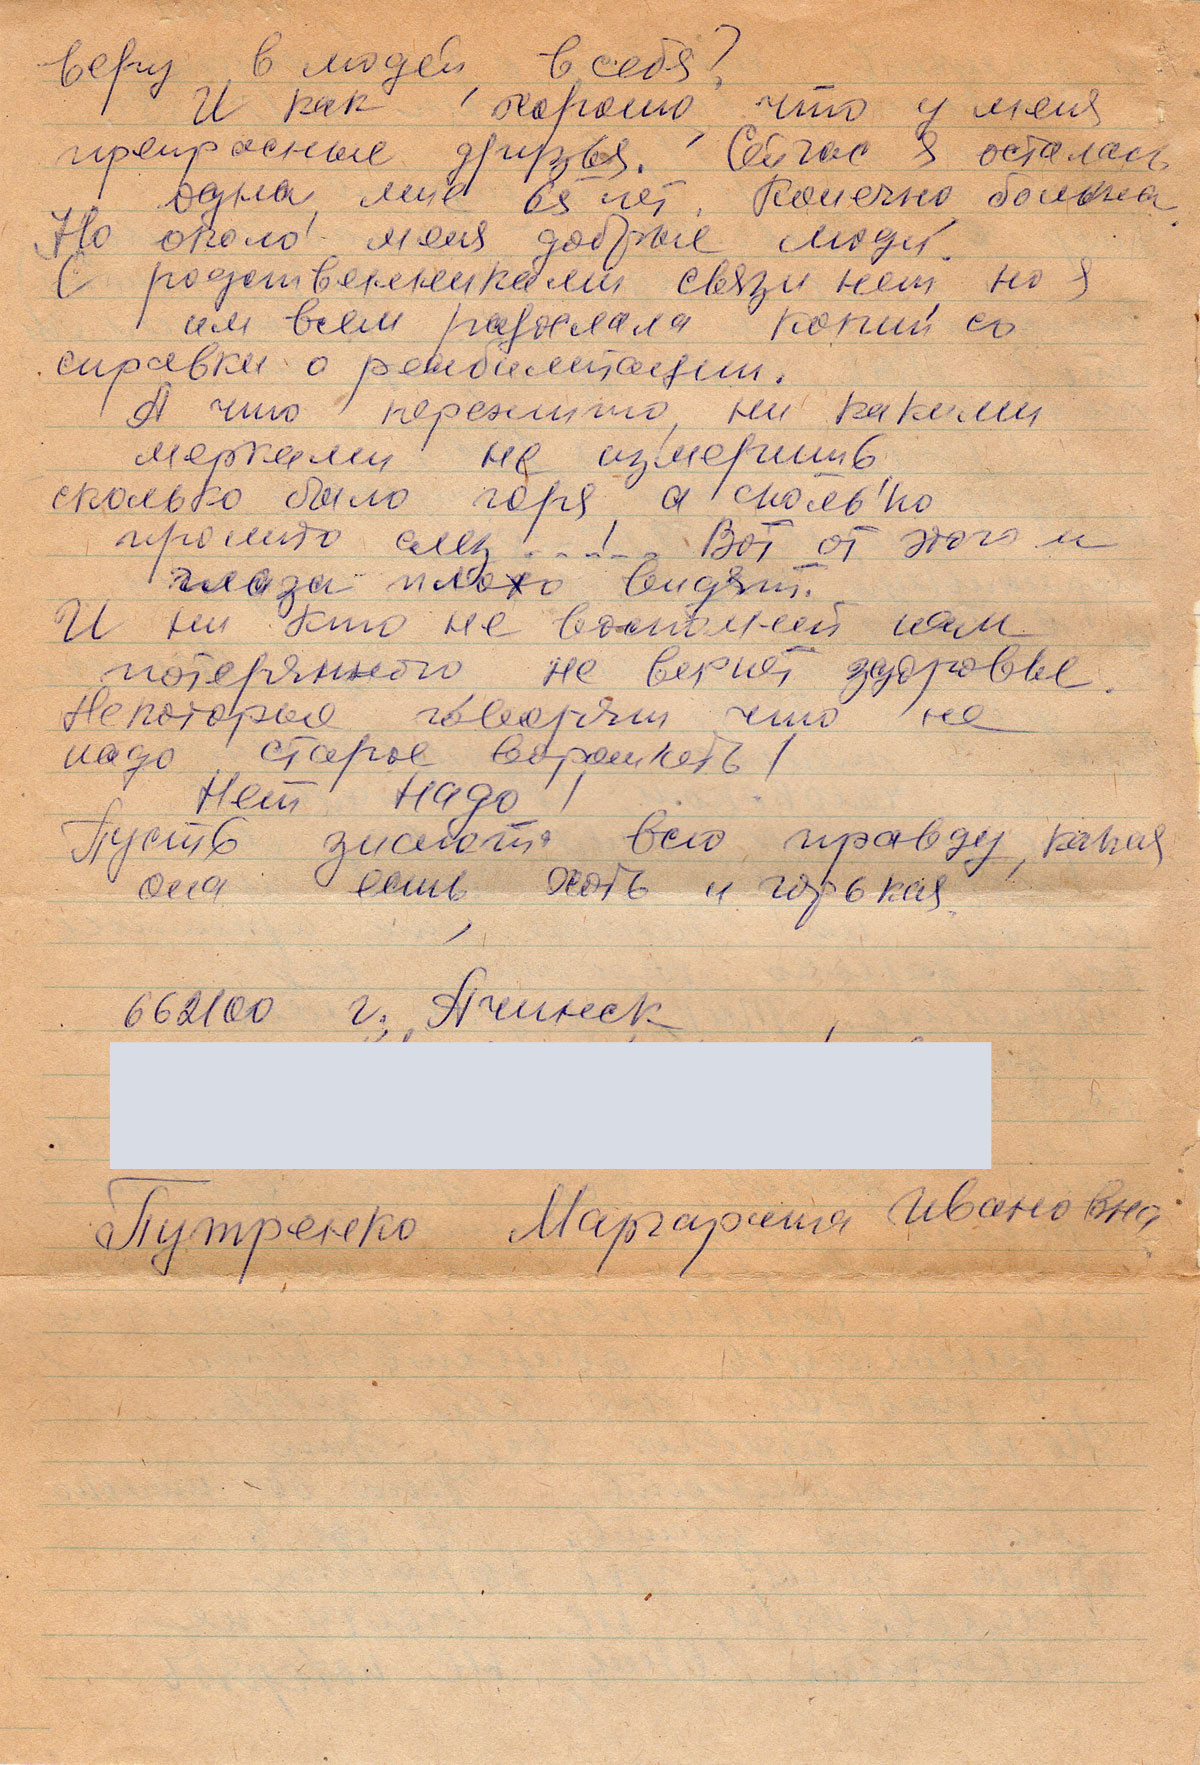 веру в людей, в себя?
И как хорошо, что у меня
прекрасные друзья. Сейчас я осталась
одна, мне 65 лет. Конечно больна.
Но около меня добрые люди.
С родственниками связи нет но я
им всем разослала копии со
справки о реабилитации.
А что пережито, ни какими
мерками не измерить,
сколько было горя а сколько
пролито слез ....!... Вот от этого и
глаза плохо видят.
И ни кто не восполнит нам
потерянного не вернет здоровье.
Некоторые говорят что не
надо старое ворошить!
Нет надо!
Пусть знают всю правду, какая
она есть хоть и горькая.
662100 г. Ачинск
Путренко Маргарита Ивановна